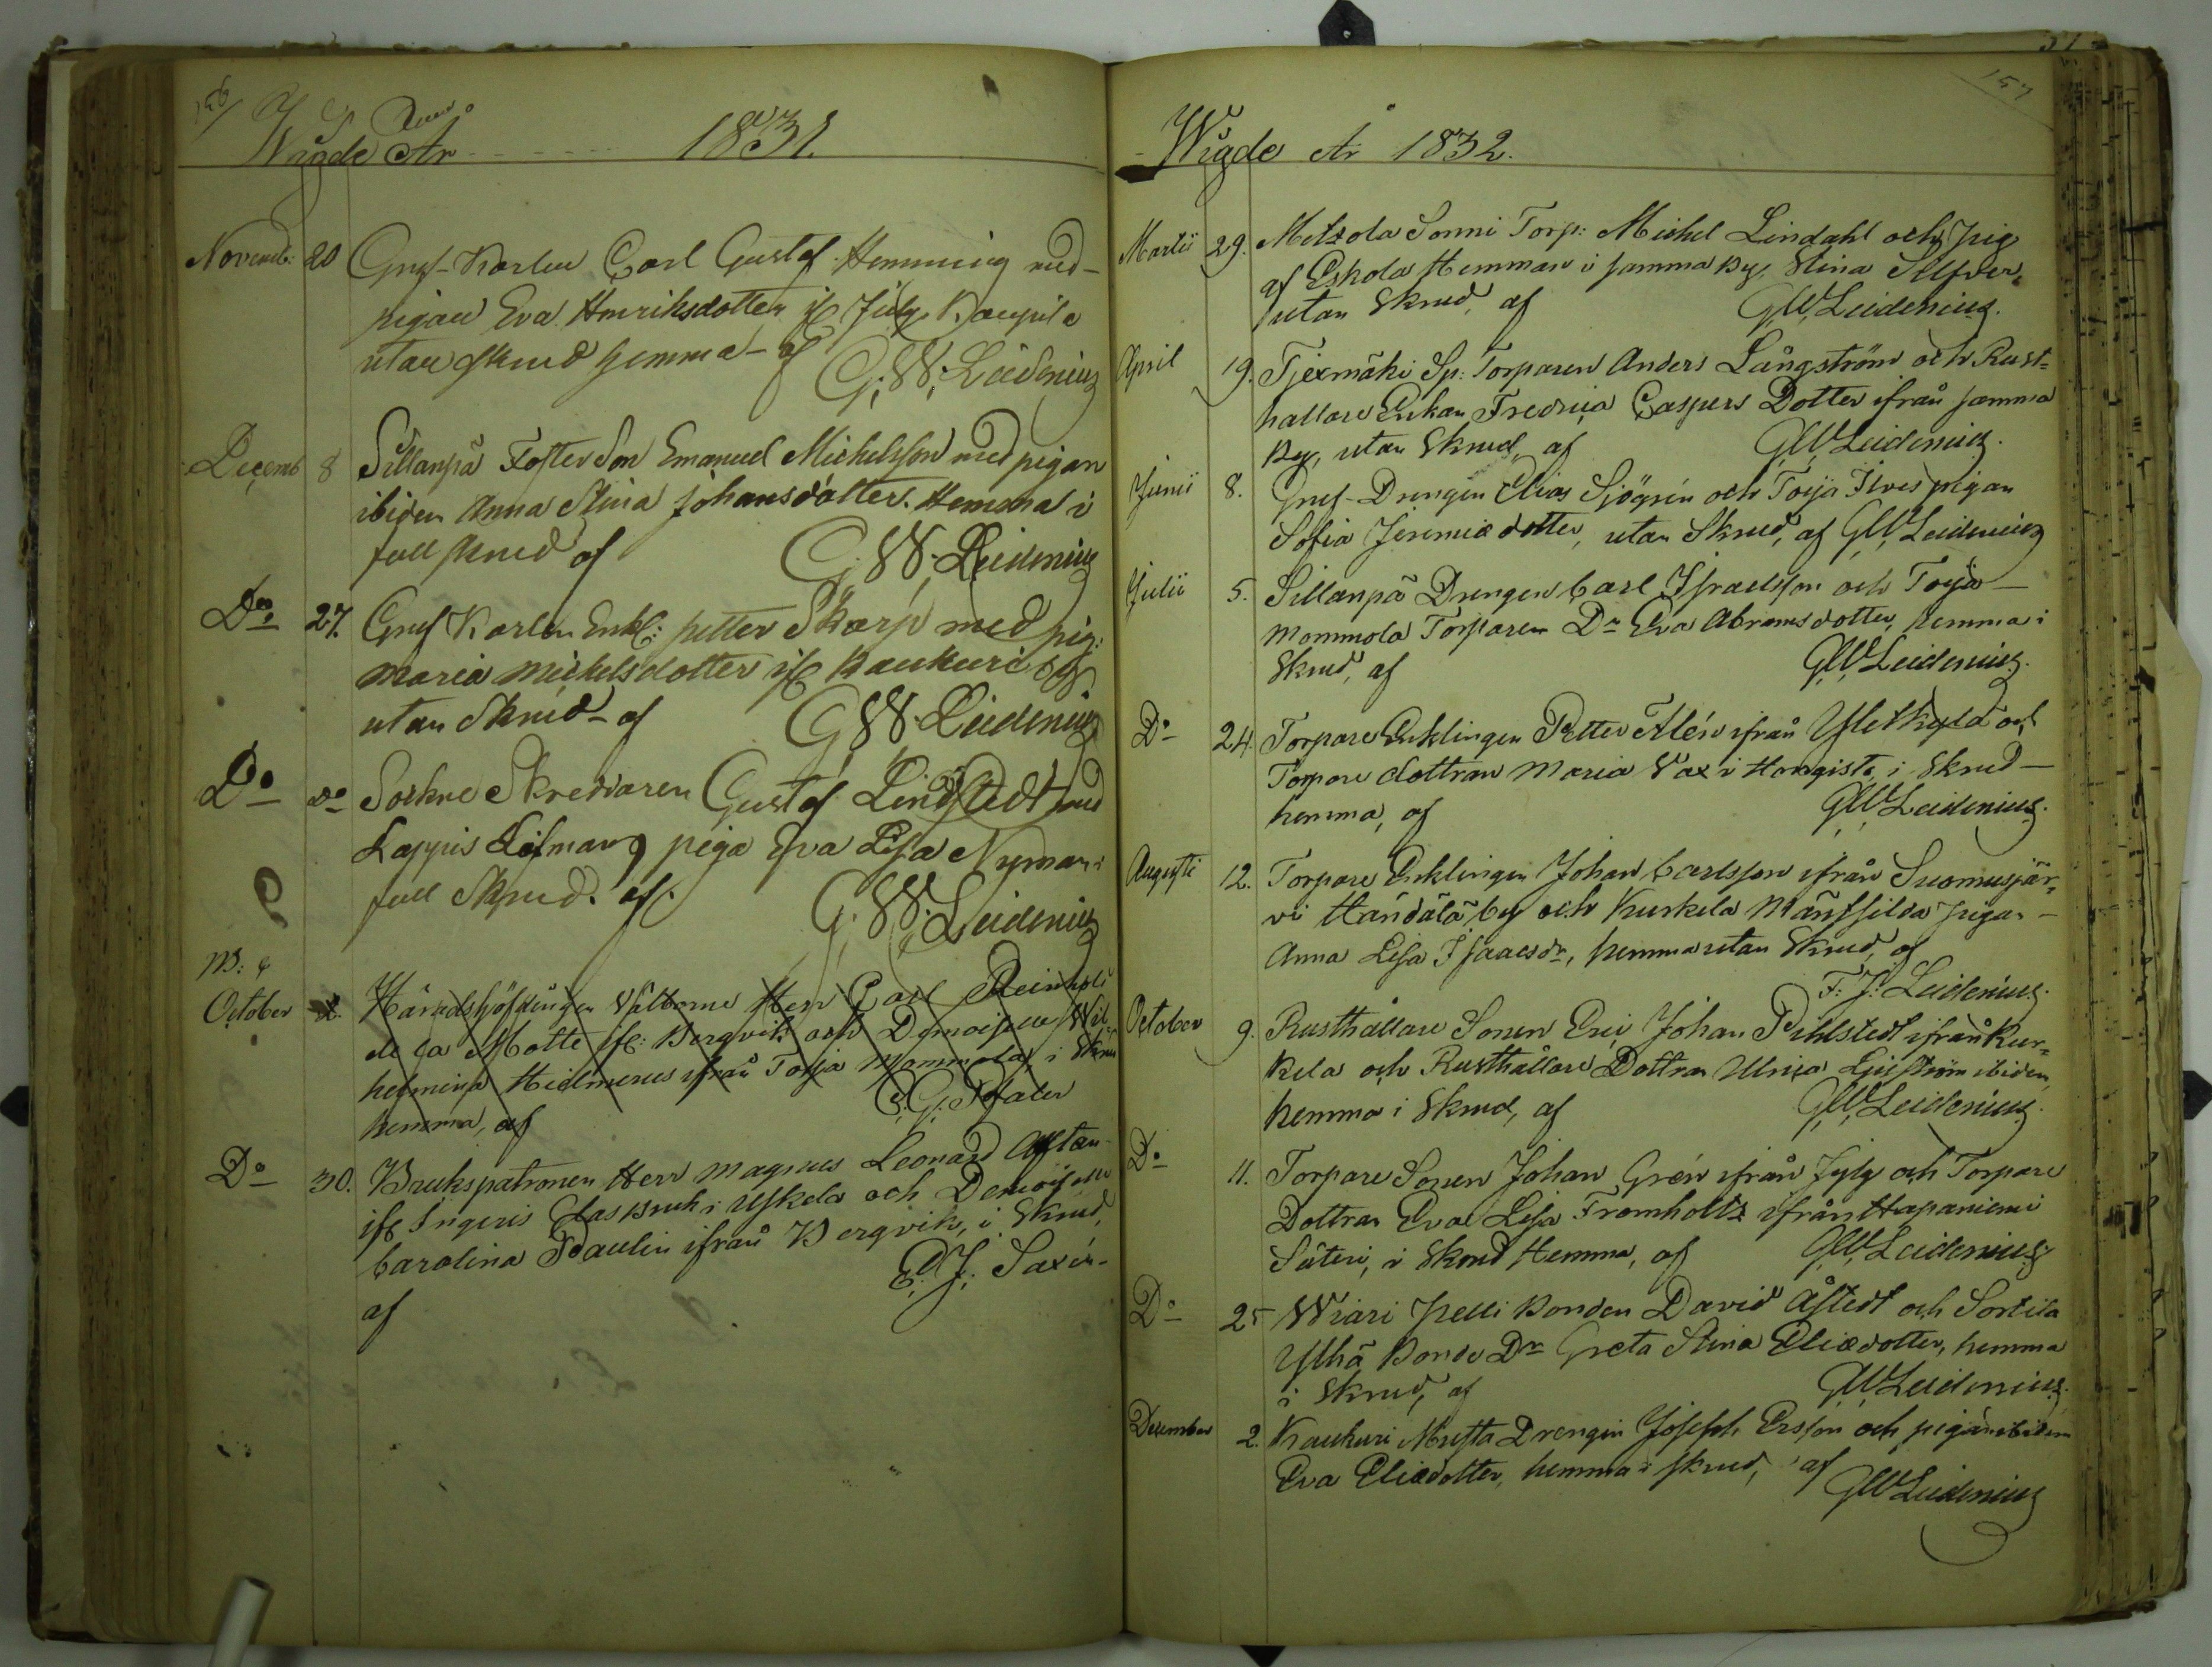 156
Wigde År 1831.
Novemb: 20 Gruf-Karlen Carl Gustaf Hemming med
pigan Eva Henriksdotter if Jyly Kaupila
utan skrud hemma - af
G. W. Leidenius
Decemb 8 Sillanpä Foster Son Emanuel Michelsson med pigan
ibidem Anna Stina Johansdotter. Hemma i
full skrud af G. W. Leidenius
Do 27. Gruf Karlen Enkl: petter Skarp med pig:
Maria Michelsdotter if Kaukuri by
utan Skrud - af G. W. Leidenius
Do do Sockne Skreddaren Gustaf Lindstedt med
Lappis Löfmans piga Eva Lisa Nyman i
full Skrud. af. G. W. Leidenius
October Häradshöfdingen Välborne Herr Carl Reinhold
de la Motte if: Bergvik och Demoiselle Wil-
helmina Hidmerus ifrån Toija Mommola, i Skrud
hemma, af
Do 30. Brukspatronen Herr Magnus Leonard
ifr Ingeris Glasbruk i Uskela och Demoiselle
Carolina Paulin ifrån Bergvik, i Skrud,
af E. J. Saxén.
157
Wigde År 1832.
Martii 29. Metsola Sonni Torp: Michel Lindahl och pig
af Eskola Hemman i samma By, Stina Silfver,
utan Skrud, af GW Leidenius.
April 19. Tjexmäki Sp: Torparen Anders Långström och Rust-
hållare Enkan Fredrica Caspers Dotter ifrån samma
By, utan Skrud, af GW Leidenius.
Junii 8. Gruf-Drengen Elias Sjögrén och Toija Ilves pigan
Sofia Jeremiædotter, utan Skrud, af GW Leidenius
Julii 5. Sillanpä Drengen Carl Israelsson och Toija
Mommola Torparen Dr Eva Abramsdotter, hemma i
Skrud, af GW Leidenius.
Do 24. Torpare Enklingen Petter Alén ifrån Yliskylä och
Torpare dottran Maria Vax i Hongisto, i Skrud
hemma, af GW Leidenius.
Augusti 12. Torpare Enklingen Johan Carlsson ifrån Suomusjär-
vi Händälä by och Kurkela Mäntsilda pigan
Anna Lisa Isaacsdr, hemma utan Skrud, af
F. J. Leidenius.
October 9. Rusthållare Sonen Eric Johan Pihlstedt ifrån Kur-
kela och Rusthållare Dottran Ulrica Liljström ibidem,
hemma i Skrud, af GW Leidenius.
Do 11. Torpare Sonen Johan Grén ifrån Jyly och Torpare
Dottran Eva Lisa Fromholtz ifrån Hapaniemi
Säteri, i Skrud Hemma, af GW Leidenius
Do 25 Wiari Pelli Bonden David Åstedt och Sortila
Ylhä Bonde Dr Greta Stina Eliædotter, hemma
i Skrud, af GW Leidenius.
December 2. Kaukuri Musta Drengen Joseph Ersson och pigan ibidem
Eva Eliædotter, hemma i skrud, af
GW Leidenius